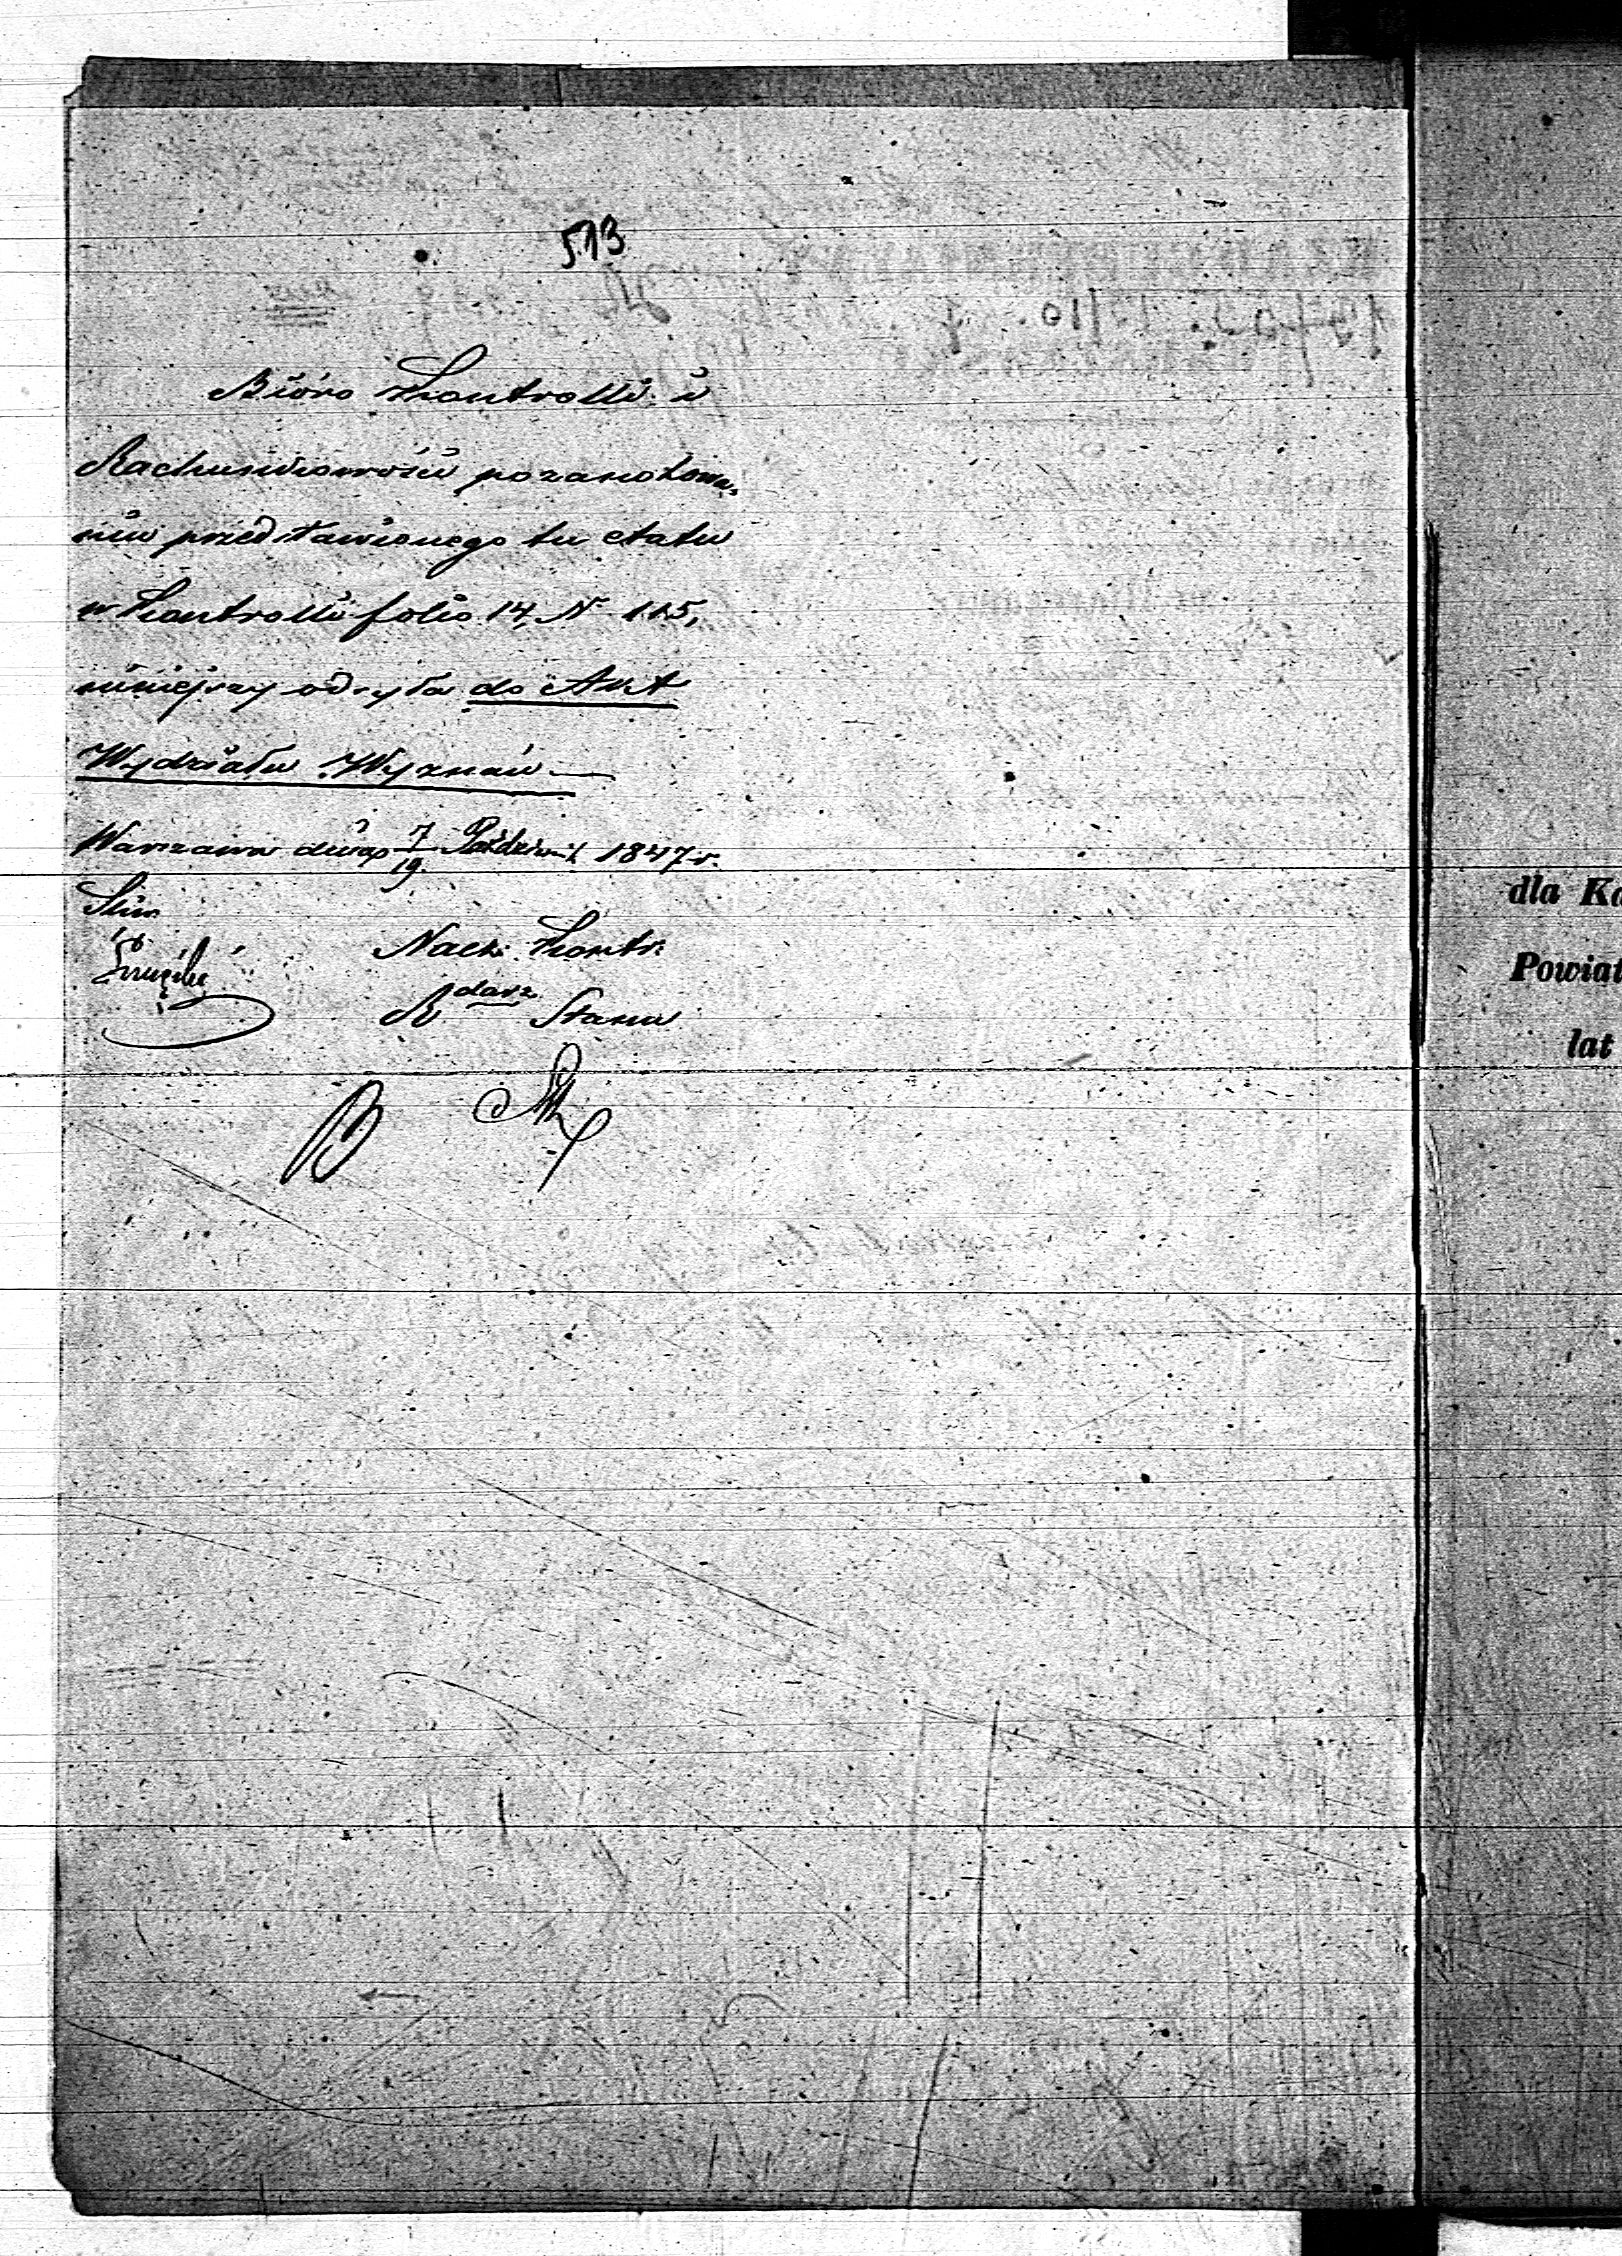 513
Bióro Kontrolli i
Rachunkowości po zanotowa-
niu przedstawionego tu etatu
w Kontrolli folio 14, N 115,
niniejszy odsyła do Akt
Wydziału Wyznań —
Warszawa dnia 7/19 Październik 1847 r.
Nacz. Kontr.
R darz Stanu
dla Ka
Powiat
lat